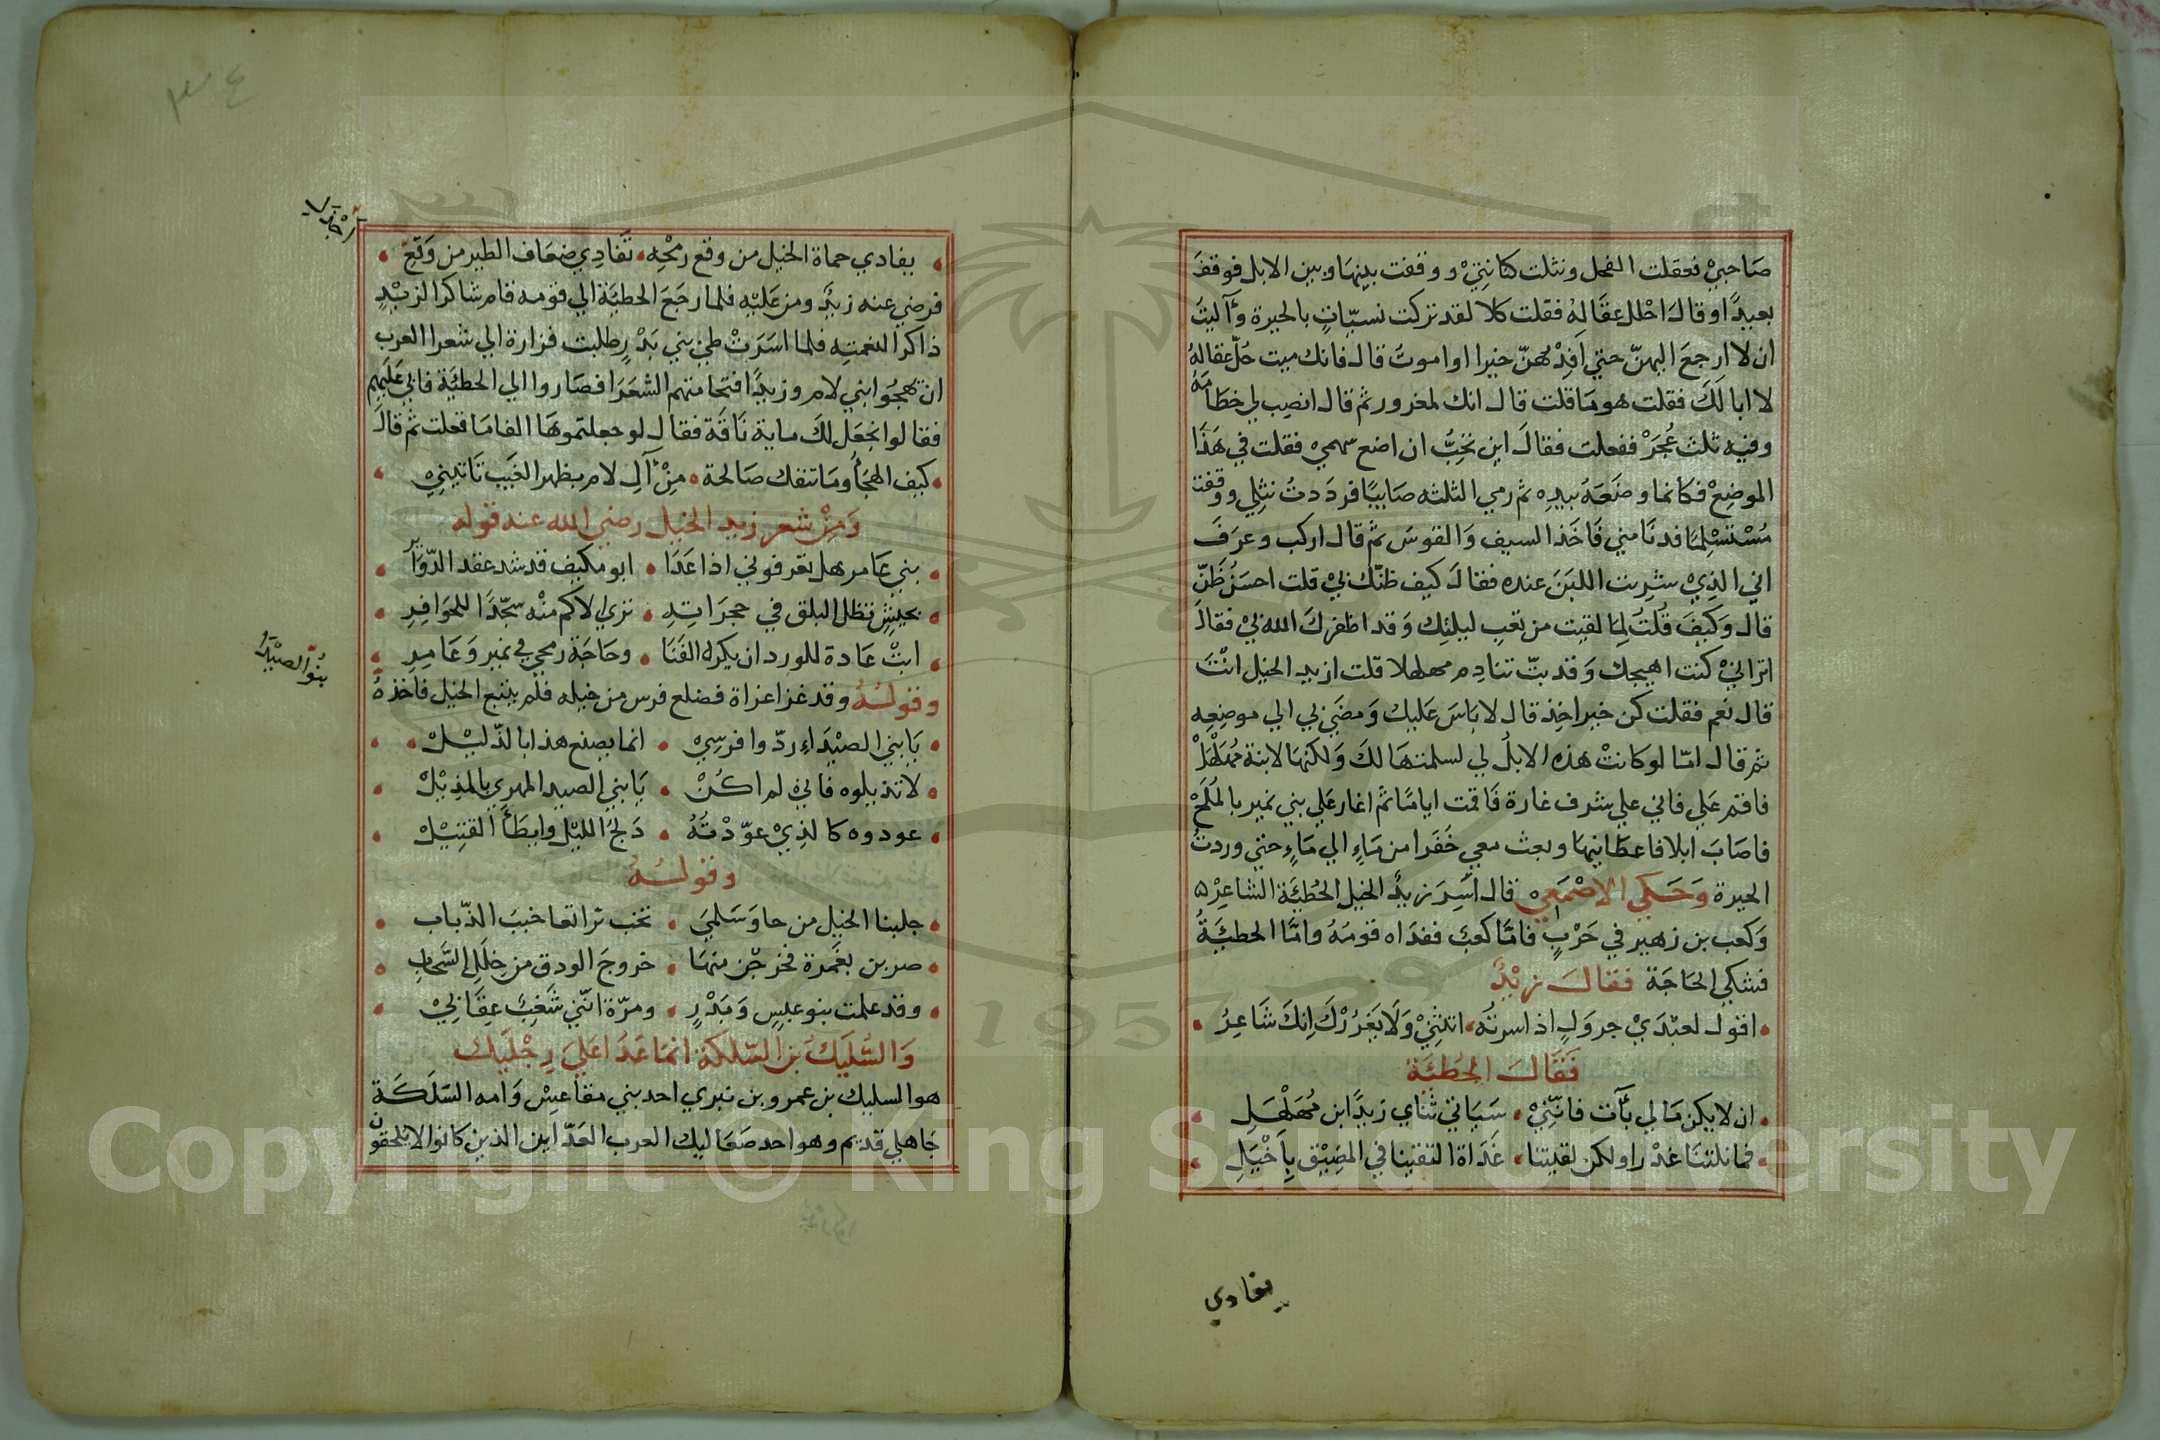 صَاحِبِيْ فعقلت الفحل ونثلت كنانتِيْ ووقفت بينهَا وبين الابل فوقفَ
بعيدًا وقالَ احْلل عقَالهُ فقلت كلا لقد تركت نسيّاتٍ بالحيرة وآليتُ
ان لا ارجعَ اليهنّ حتي اَفِدْهُنّ خيرا او اموتُ قال فانك ميت حُلّ عقالهُ
لا ابا لَكَ فقلت هو مَا قلت قال انك لمغرور ثم قال انصب لي خطَامَهُ
وفيه ثلث عُجَرْ ففعلت فقالَ اين تحِبُّ ان اضع سهمي فقلت في هَذَا
الموضِعْ فكانما وضَعَهُ بيدِه ثم رمي الثلثه صَايبًا فردَدتُ نثِلي ووقفت
مُسْتسْلِمًا فدنَا مني فَاخَذ السيف وَالقوسَ ثم قال اركب وعرَفَ
اني الذِيْ شرِبت اللبَنَ عنده فقالَ كيف ظنّك بيْ قلت احسَنُ ظَنّ
قال وَكيفَ قُلتُ لِمَا لقيت من تعبِ ليلتِك وَقد اظفرك الله بيْ فقالَ
اترانيْ كنت اهيجك وَقد بتّ تنادِم مهلهلا قلت ازيد الخيل انْتَ
قال نعم فقلت كن خير اخِذ قال لا بَاسَ عَليك وَمضَي بي الي موضِعِه
ثم قال امّا لو كانتْ هذه الابلُ لي لسلمتهَا لكَ وَلكنهَا لابنة مُهَلْهَلْ
فاقم عَلي فاني علي شرف غارة فَاقمت ايامًا ثم اغار عَلي بني نمير بالمُلَحْ
فاصَابَ ابلا فاعطَانيهَا وبعث معي خَفَرا من مَاءٍ الي مَاءٍ حتي وردتُ
الحيرة وَحَكي الاصْمَعِي قال اسَرَ زيدُ الخيل الحُطيَّة الشاعِرْ
وَكعب بن زهير في حَرْبٍ فامَّا كعبٌ ففدَاه قومَهُ وامَّا الحطيَّةُ
فشكي الحَاجَة فقالَ زيْدٌ
اقول لعبْدَيْ جروَلٍ اذ اسرتُه اثِبْنِيْ وَلَا يَغرُرْكَ اِنكَ شَاعِرُ
فقَالَ الحُطيَّةُ
ان لا يكن مَالي بآتٍ فانّنِيْ سَيَاتي ثنَاي زيدًا ابن مُهَلْهَلِ
فما نلتنَا غدْرا ولكن لقيتنا غَدَاة التقينا في المضِيْق بِاَخْيَلِ
يفادي
٣٤
يفادي حماة الخيل من وقع رمْحِه تَفادِي ضِعَاف الطير من وَقع
اَجْدَلِ
فرضي عنه زيدٌ ومن عَليْه فلما رجَعَ الحطيَّة الي قومه قام شاكرا لزيْدٍ
ذاكرا لنعمتِه فلما اسَرَتْ طيّ بني بَدْرٍ طلبت فزارة الي شعرا العرب
ان تهجُوا بني لام وزيدًا فتحامتهم الشعَرَا فصَاروا الي الحطيَّة فابي عَليهِم
فقالوا نجْعَل لكَ ماية نَاقَة فقال لو جعلتموهَا الفا مَا فعلت ثم قالَ
كيف الهجَأ ومَا تنفك صَالحة مِنْ آلِ لام بظهر الغَيب تَاتيْنِيْ
وَمِنْ شعر زيد الخيل رضي الله عنه قوله
بني عَامر هل تعرفوني اذا غَدَا ابو مكنِف قد شد عقد الدّوآبر
بجيشٍ تظل البلق في حجَرَاتِهِ تري الاكم منْه سجّدًا للحوَافِرِ
ابتْ عَادة للورد ان يكره القَنَا وحَاجَة رمحي في نمير وَعَامِرِ
وقولُهُ وقد غزا غزاة فضلع فرس من خيله فلم يتبع الخيل فاَخذهُ
بنُو الصيْدَا
يَا بَني الصيْدَاءِ ردّوا فرسِيْ انما يصنع هذا بالذّليْلْ
لا تذيلوه فانيْ لم اكُنْ يَا بني الصيد المهري بالمذيْلْ
عودوه كالذِيْ عوّدْتُهُ دَلجَ الليْل وايطَأَ القتِيْلْ
وقولُهُ
جلبنا الخيل من حا وَسَلمَي تخب تراتعا خببَ الذّباب
ضربن بغَمرة فخرجْن منهَا خروجَ الودق من خِلَلِ السَّحَابِ
وقد علمت بنو عبسٍ وَبَدْرٍ ومرّة انّني شَغِبٌ عِقَابيْ
وَالسُّلَيَكُ بن السّلكة انمَا عَدَا عَليَ رِجْلَيك
هو السليك بن عمرو بن يثري احد بني مقَاعِسْ وَامه السّلَكَة
جَاهلي قديم وهو احد صَعَاليك العرب العَدّايين الذين كانوا لا يلحقون